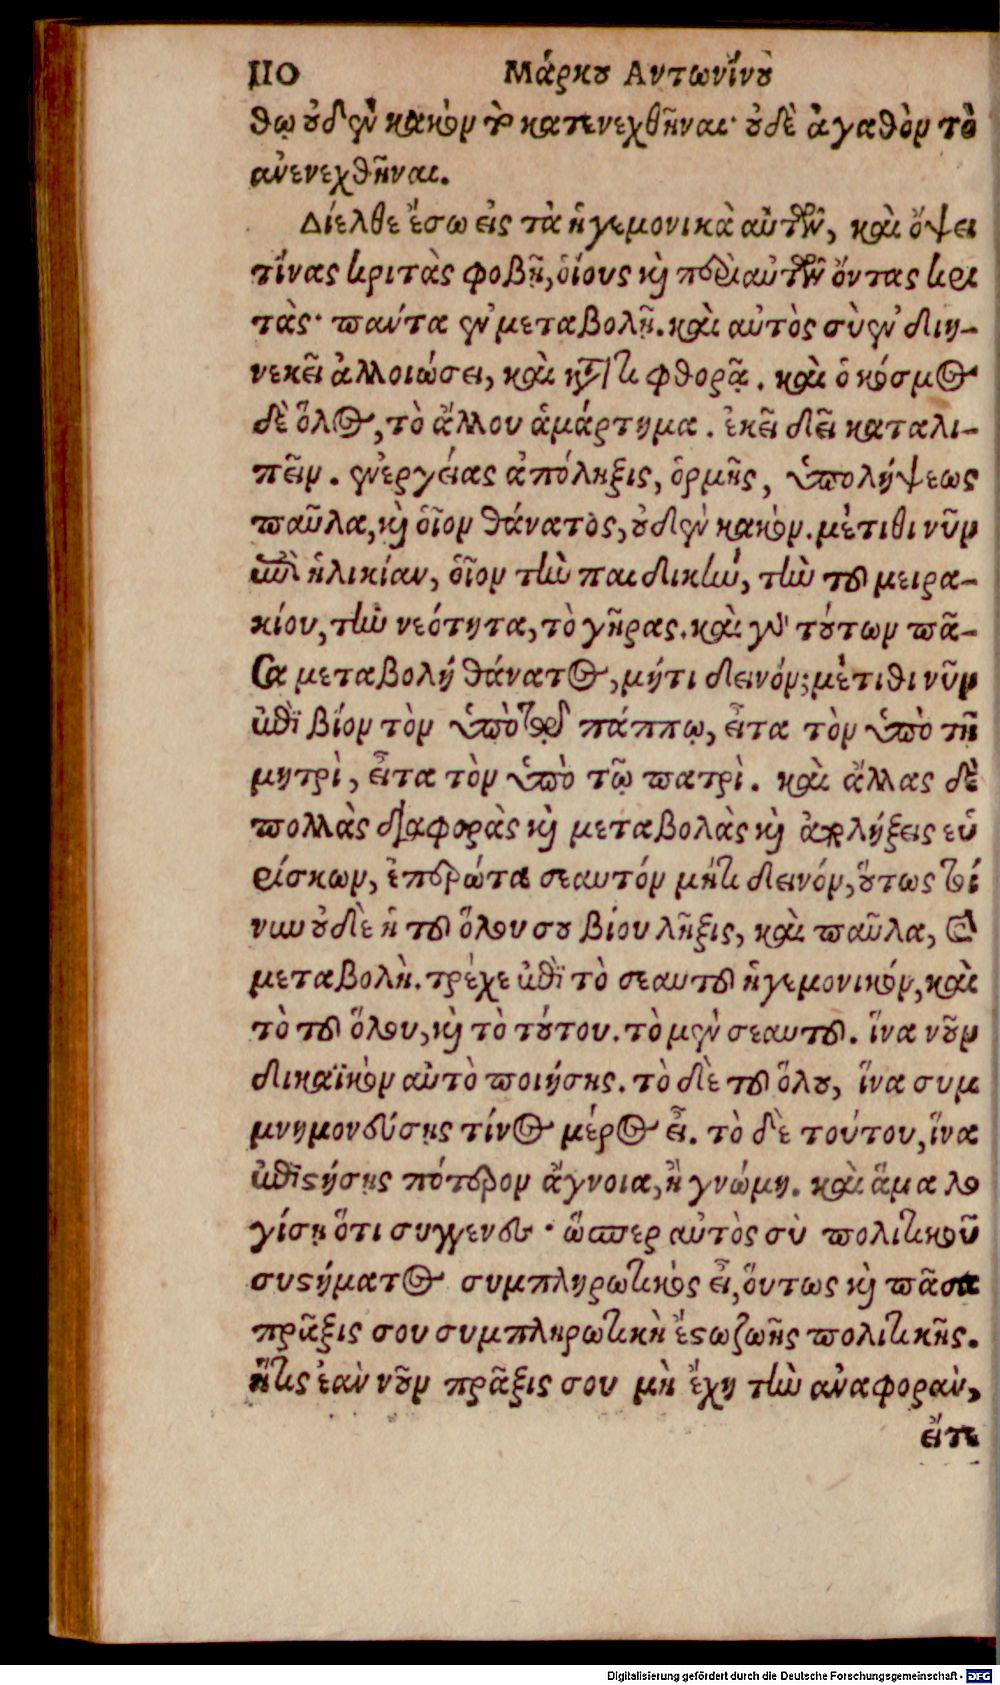 110 Μάρκου Αντωνίνου
θῳ οὐδὲν κακὸν τὸ κατενεχθῆναι· οὐδὲ ἀγαθὸν τὸ
ἀνενεχθῆναι.
Δίελθε ἔσω εἰς τὰ ἡγεμονικὰ αὐτῶν, καὶ ὄψει
τίνας κριτὰς φοβῇ, οἵους καὶ περὶ αὐτῶν ὄντας κρι
τὰς· πάντα ἐν μεταβολῇ. καὶ αὐτὸς σὺ ἐν διη-
νεκεῖ ἀλλοιώσει, καὶ κατά τι φθορᾷ. καὶ ὁ κόσμος
δὲ ὅλος, τὸ ἄλλου ἁμάρτημα. ἐκεῖ δεῖ καταλι-
πεῖν. ἐνεργείας ἀπόληξις, ὁρμῆς, ὑπολήψεως
παῦλα, καὶ οἷον θάνατος, οὐδὲν κακόν. μέτιθι νῦν
ἐπὶ ἡλικίαν, οἷον τὴν παιδικήν, τὴν τοῦ μειρα-
κίου, τὴν νεότητα, τὸ γῆρας. καὶ γὰρ τούτων πᾶ-
σα μεταβολή θάνατος, μήτι δεινόν; μέτιθι νῦν
ἐπὶ βίον τὸν ὑπὸ τῷ πάππῳ, εἶτα τὸν ὑπὸ τῇ
μητρὶ, εἶτα τὸν ὑπὸ τῷ πατρὶ. καὶ ἄλλας δὲ
πολλὰς διαφορὰς καὶ μεταβολὰς καὶ ἀπολήξεις εὑ
ρίσκων, ἐπερώτα σεαυτόν μήτι δεινόν, οὕτως τοί
νυν οὐδὲ ἡ τοῦ ὅλου σου βίου λῆξις, καὶ παῦλα, καὶ
μεταβολὴ. τρέχε ἐπὶ τὸ σεαυτοῦ ἡγεμονικόν, καὶ
τὸ τοῦ ὅλου, καὶ τὸ τούτου. τὸ μὲν σεαυτοῦ. ἵνα νοῦν
δικαϊκὸν αὐτὸ ποιήσῃς. τὸ δὲ τοῦ ὅλου, ἵνα συμ
μνημονεύσῃς τίνος μέρος εἶ. τὸ δὲ τούτου, ἵνα
ἐπιστήσῃς πότερον ἄγνοια, ἢ γνώμη. καὶ ἅμα λο
γίσῃ ὅτι συγγενές· ὥσπερ αὐτὸς σὺ πολιτικοῦ
συστήματος συμπληρωτικὸς εἶ, οὕτως καὶ πᾶσα
πρᾶξις σου συμπληρωτικὴ ἔστω ζωῆς πολιτικῆς.
ἥτις ἐὰν νοῦν πρᾶξις σου μὴ ἔχῃ τὴν ἀναφοράν,
εἴτε
Digitalisierung gefördert durch die Deutsche Forschungsgemeinschaft - DFG